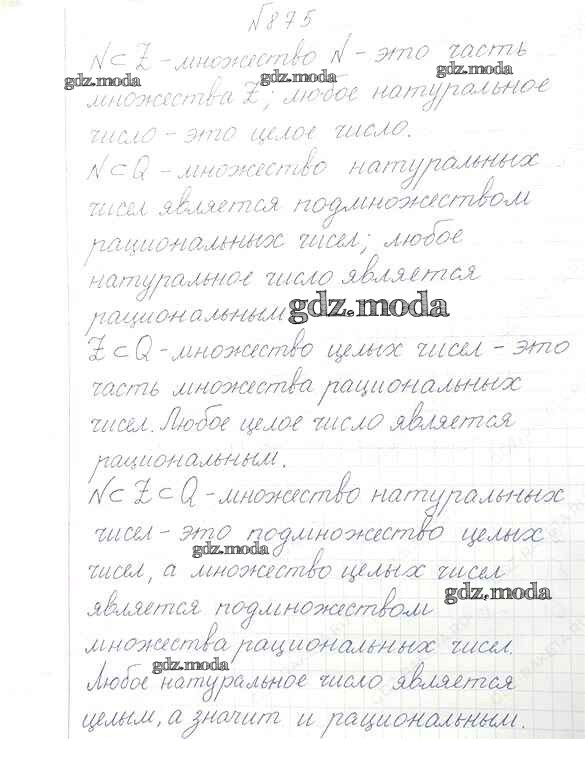 №875
N⊂Z - множество N - это часть
множества Z; любое натуральное
число - это целое число.
N⊂Q - множество натуральных
чисел является подмножеством
рациональных чисел; любое
натуральное число является
рациональным
Z⊂Q - множество целых чисел - это
часть множества рациональных
чисел. Любое целое число является
рациональным.
N⊂Z⊂Q - множество натуральных
чисел - это подмножество целых
чисел, а множество целых чисел
является подмножеством
множества рациональных чисел.
Любое натуральное число является
целым, а значит и рациональным.
gdz.moda
gdz.moda
gdz.moda
gdz.moda
gdz.moda
gdz.moda
gdz.moda